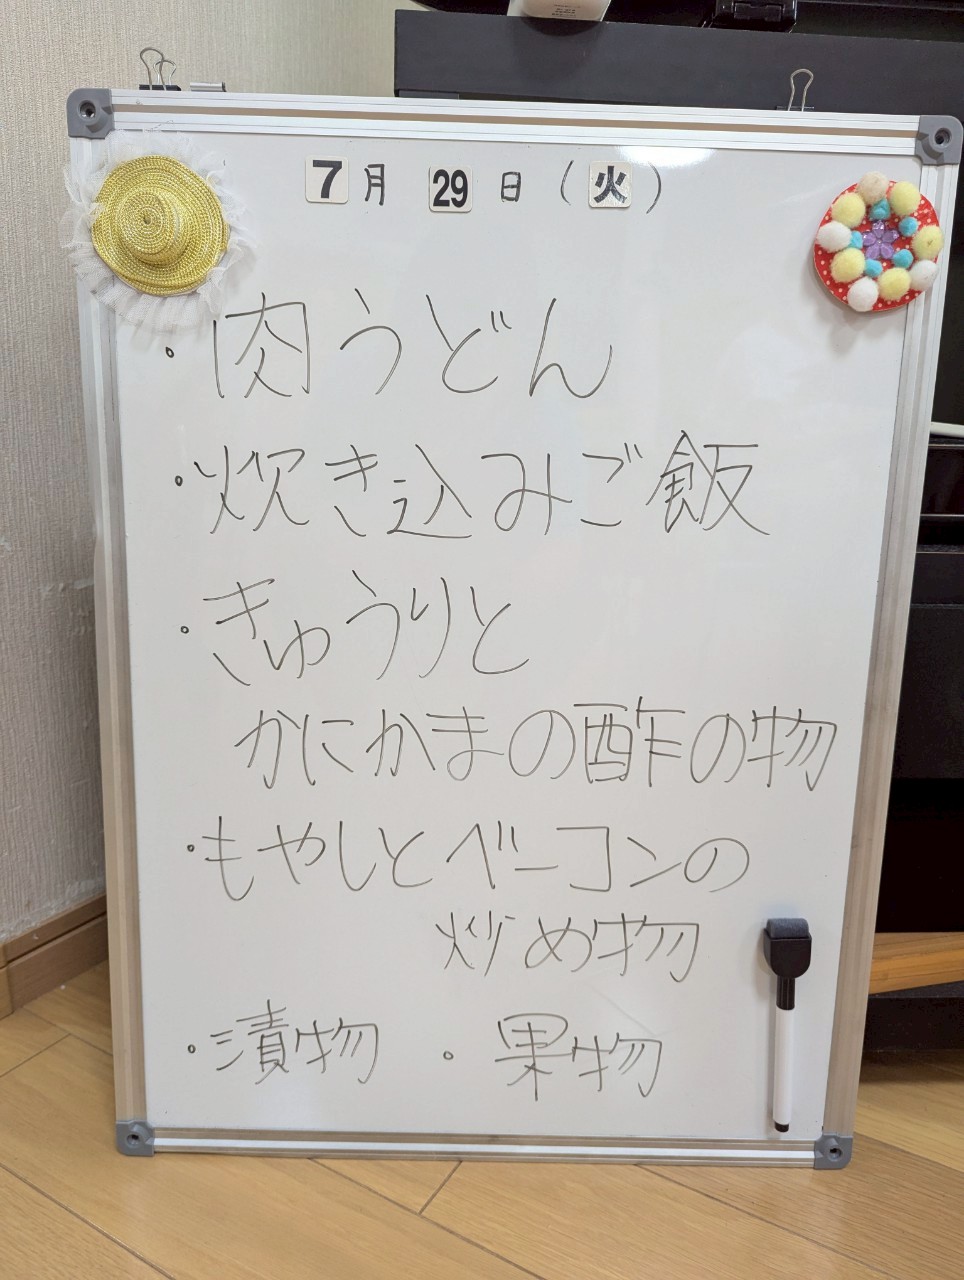 7月 29日（火）
・肉うどん
・炊き込みご飯
・きゅうりと
かにかまの酢の物
・もやしとベーコンの
炒め物
・漬物 ・果物